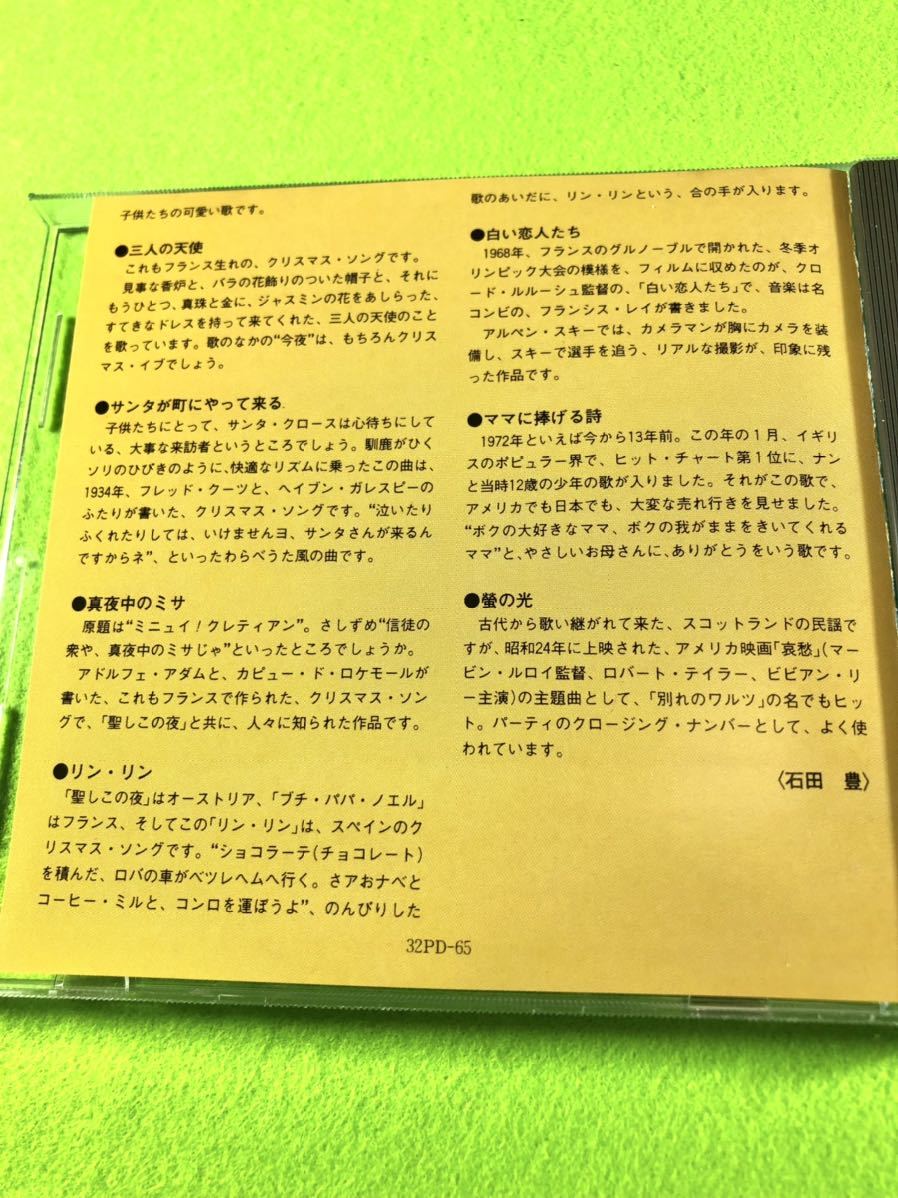 子供たちの可愛い歌です。
●三人の天使
これもフランス生れの、クリスマス・ソングです。
見事な香炉と、バラの花飾りのついた帽子と、それに
もうひとつ、真珠と金に、ジャスミンの花をあしらった、
すてきなドレスを持って来てくれた、三人の天使のこと
を歌っています。歌のなかの“今夜”は、もちろんクリス
マス・イブでしょう。
●サンタが町にやって来る
子供たちにとって、サンタ・クロースは心待ちにして
いる、大事な来訪者というところでしょう。馴鹿がひく
ソリのひびきのように、快適なリズムに乗ったこの曲は、
1934年、フレッド・クーツと、ヘイブン・ガレスピーの
ふたりが書いた、クリスマス・ソングです。“泣いたり
ふくれたりしては、いけませんヨ、サンタさんが来るん
ですからネ”、といったわらべうた風の曲です。
●真夜中のミサ
原題は“ミニュイ！クレティアン”。さしずめ“信徒の
衆や、真夜中のミサじゃ”といったところでしょうか。
アドルフェ・アダムと、カピュー・ド・ロケモールが
書いた、これもフランスで作られた、クリスマス・ソン
グで、「聖しこの夜」と共に、人々に知られた作品です。
●リン・リン
「聖しこの夜」はオーストリア、「プチ・パパ・ノエル」
はフランス、そしてこの「リン・リン」は、スペインのク
リスマス・ソングです。“ショコラーテ(チョコレート)
を積んだ、ロバの車がベツレヘムへ行く。さアおナベと
コーヒー・ミルと、コンロを運ぼうよ”、のんびりした
歌のあいだに、リン・リンという、合の手が入ります。
●白い恋人たち
1968年、フランスのグルノーブルで開かれた、冬季オ
リンピック大会の模様を、フィルムに収めたのが、クロ
ード・ルルーシュ監督の、「白い恋人たち」で、音楽は名
コンビの、フランシス・レイが書きました。
アルペン・スキーでは、カメラマンが胸にカメラを装
備し、スキーで選手を追う、リアルな撮影が、印象に残
った作品です。
●ママに捧げる詩
1972年といえば今から13年前。この年の１月、イギリ
スのポピュラー界で、ヒット・チャート第１位に、ナン
と当時12歳の少年の歌が入りました。それがこの歌で、
アメリカでも日本でも、大変な売れ行きを見せました。
“ボクの大好きなママ、ボクの我がままをきいてくれる
ママ”と、やさしいお母さんに、ありがとうをいう歌です。
●螢の光
古代から歌い継がれて来た、スコットランドの民謡で
すが、昭和24年に上映された、アメリカ映画「哀愁」(マー
ビン・ルロイ監督、ロバート・テイラー、ビビアン・リ
ー主演)の主題曲として、「別れのワルツ」の名でもヒッ
ト。パーティのクロージング・ナンバーとして、よく使
われています。
〈石田　豊〉
32PD-65